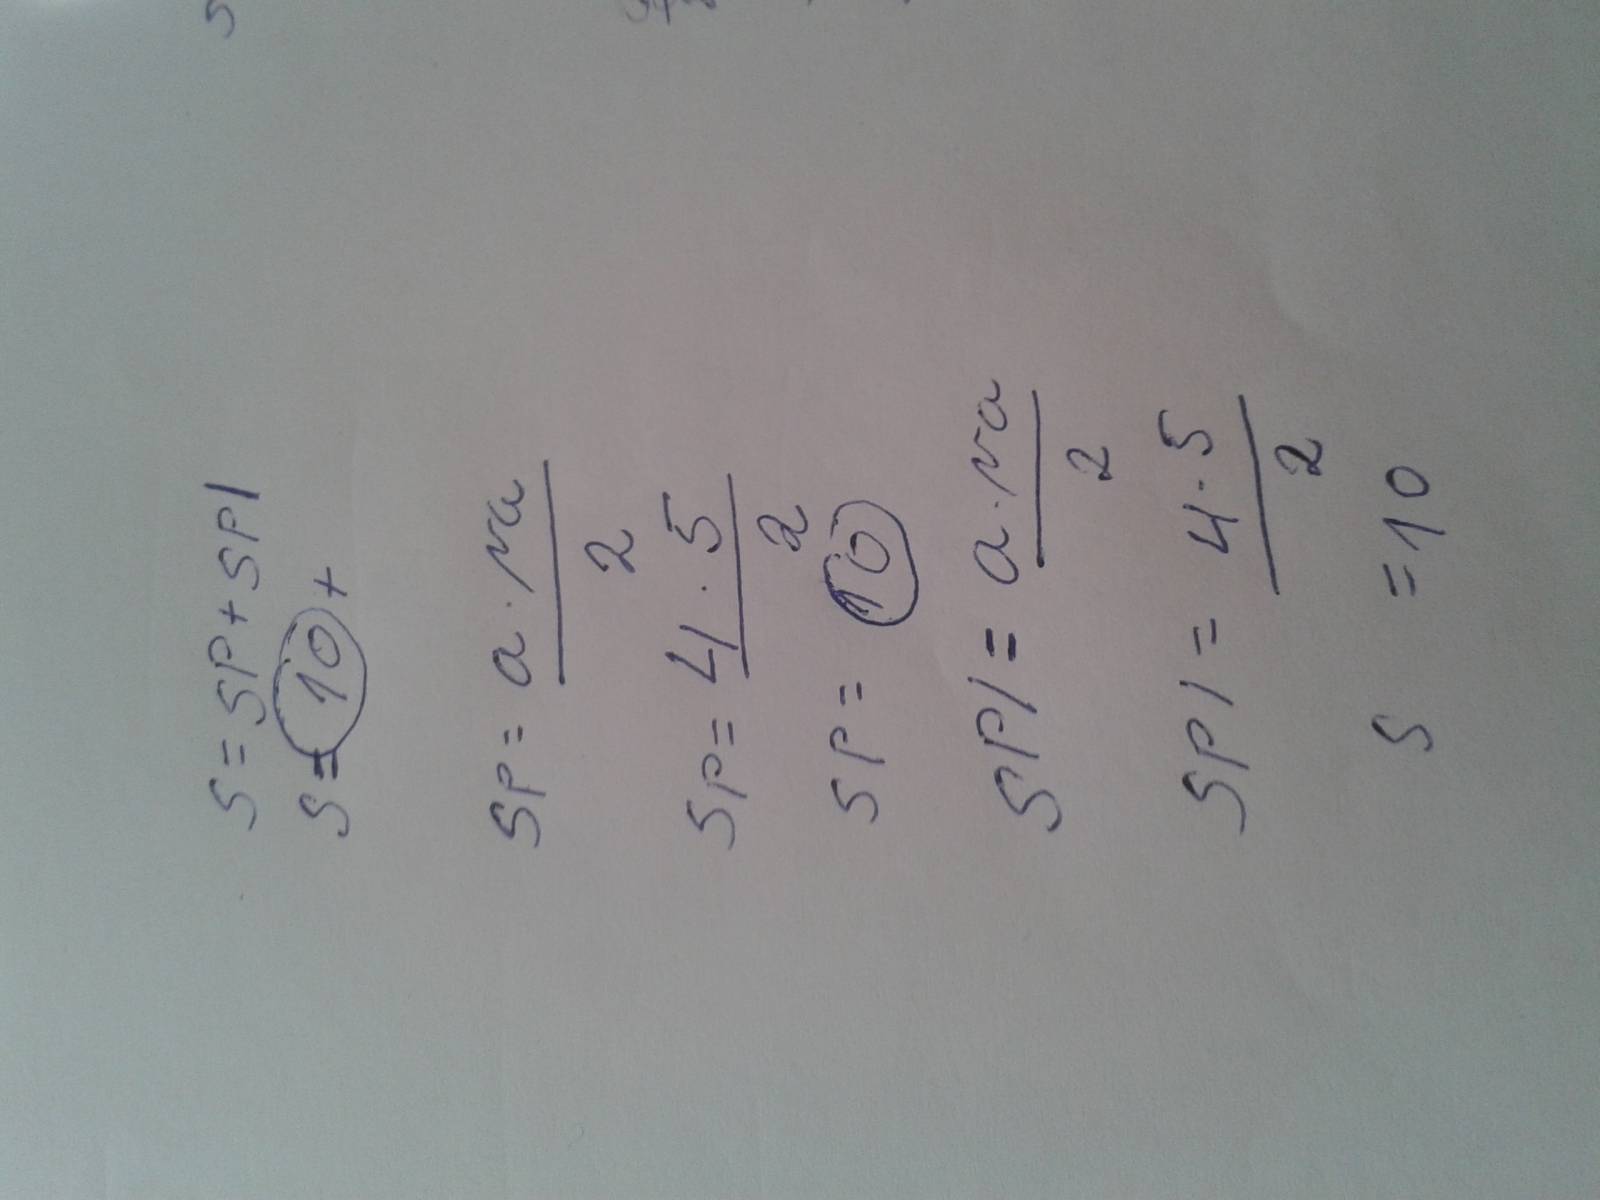 S = SP + SP1
S = 10 +
SP = a · va
2
SP = 4 · 5
2
SP = 10
SP1 = a · va
2
SP1 = 4 · 5
2
S = 10